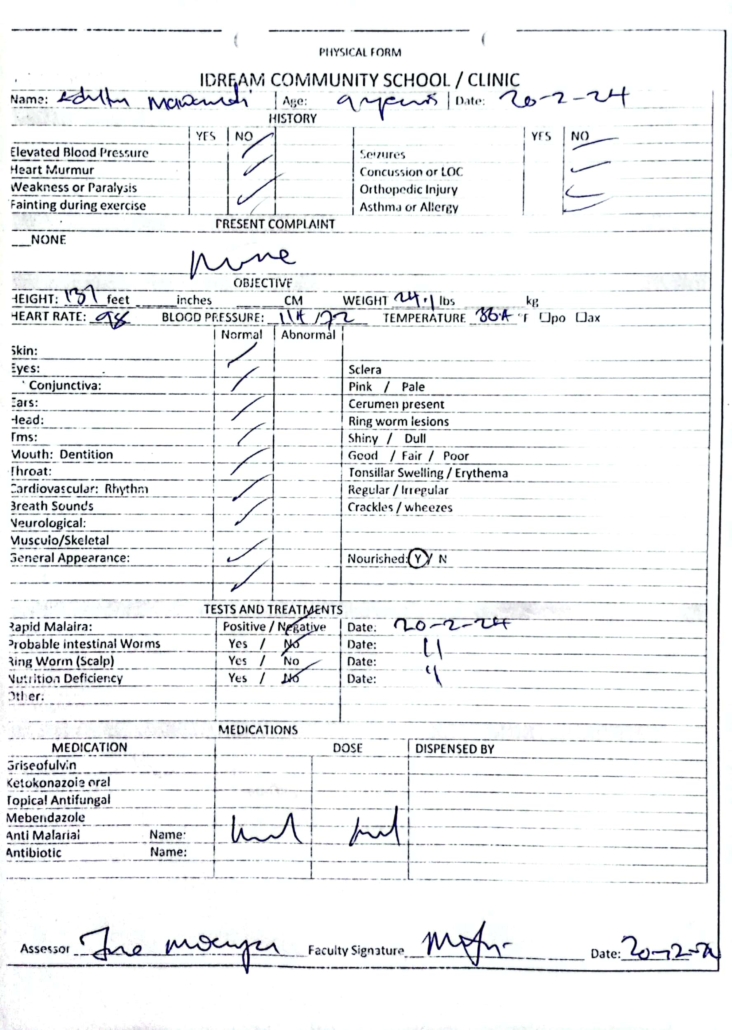 PHYSICAL FORM
IDREAM COMMUNITY SCHOOL / CLINIC
Name: Age: 9 years Date: 20-2-24
HISTORY
YES NO YES NO
Elevated Blood Pressure Seizures
Heart Murmur Concussion or LOC
Weakness or Paralysis Orthopedic Injury
Fainting during exercise Asthma or Allergy
PRESENT COMPLAINT
__NONE
None
OBJECTIVE
HEIGHT: 137 feet ____ inches ____ CM WEIGHT 24.1 lbs ____ kg
HEART RATE: 98 BLOOD PRESSURE: 114/72 TEMPERATURE 36.4 °F □po □ax
Normal Abnormal
Skin:
Eyes: Sclera
Conjunctiva: Pink / Pale
Ears: Cerumen present
Head: Ring worm lesions
Tms: Shiny / Dull
Mouth: Dentition Good / Fair / Poor
Throat: Tonsillar Swelling / Erythema
Cardiovascular: Rhythm Regular / Irregular
Breath Sounds Crackles / wheezes
Neurological:
Musculo/Skeletal
General Appearance: Nourished: Y / N
TESTS AND TREATMENTS
Rapid Malaira: Positive / Negative Date: 20-2-24
Probable intestinal Worms Yes / No Date: 11
Ring Worm (Scalp) Yes / No Date:
Nutrition Deficiency Yes / No Date: "
Other:
MEDICATIONS
MEDICATION DOSE DISPENSED BY
Griseofulvin
Ketokonazole oral
Topical Antifungal
Mebendazole
Anti Malarial Name:
Antibiotic Name:
Assessor Faculty Signature Date: